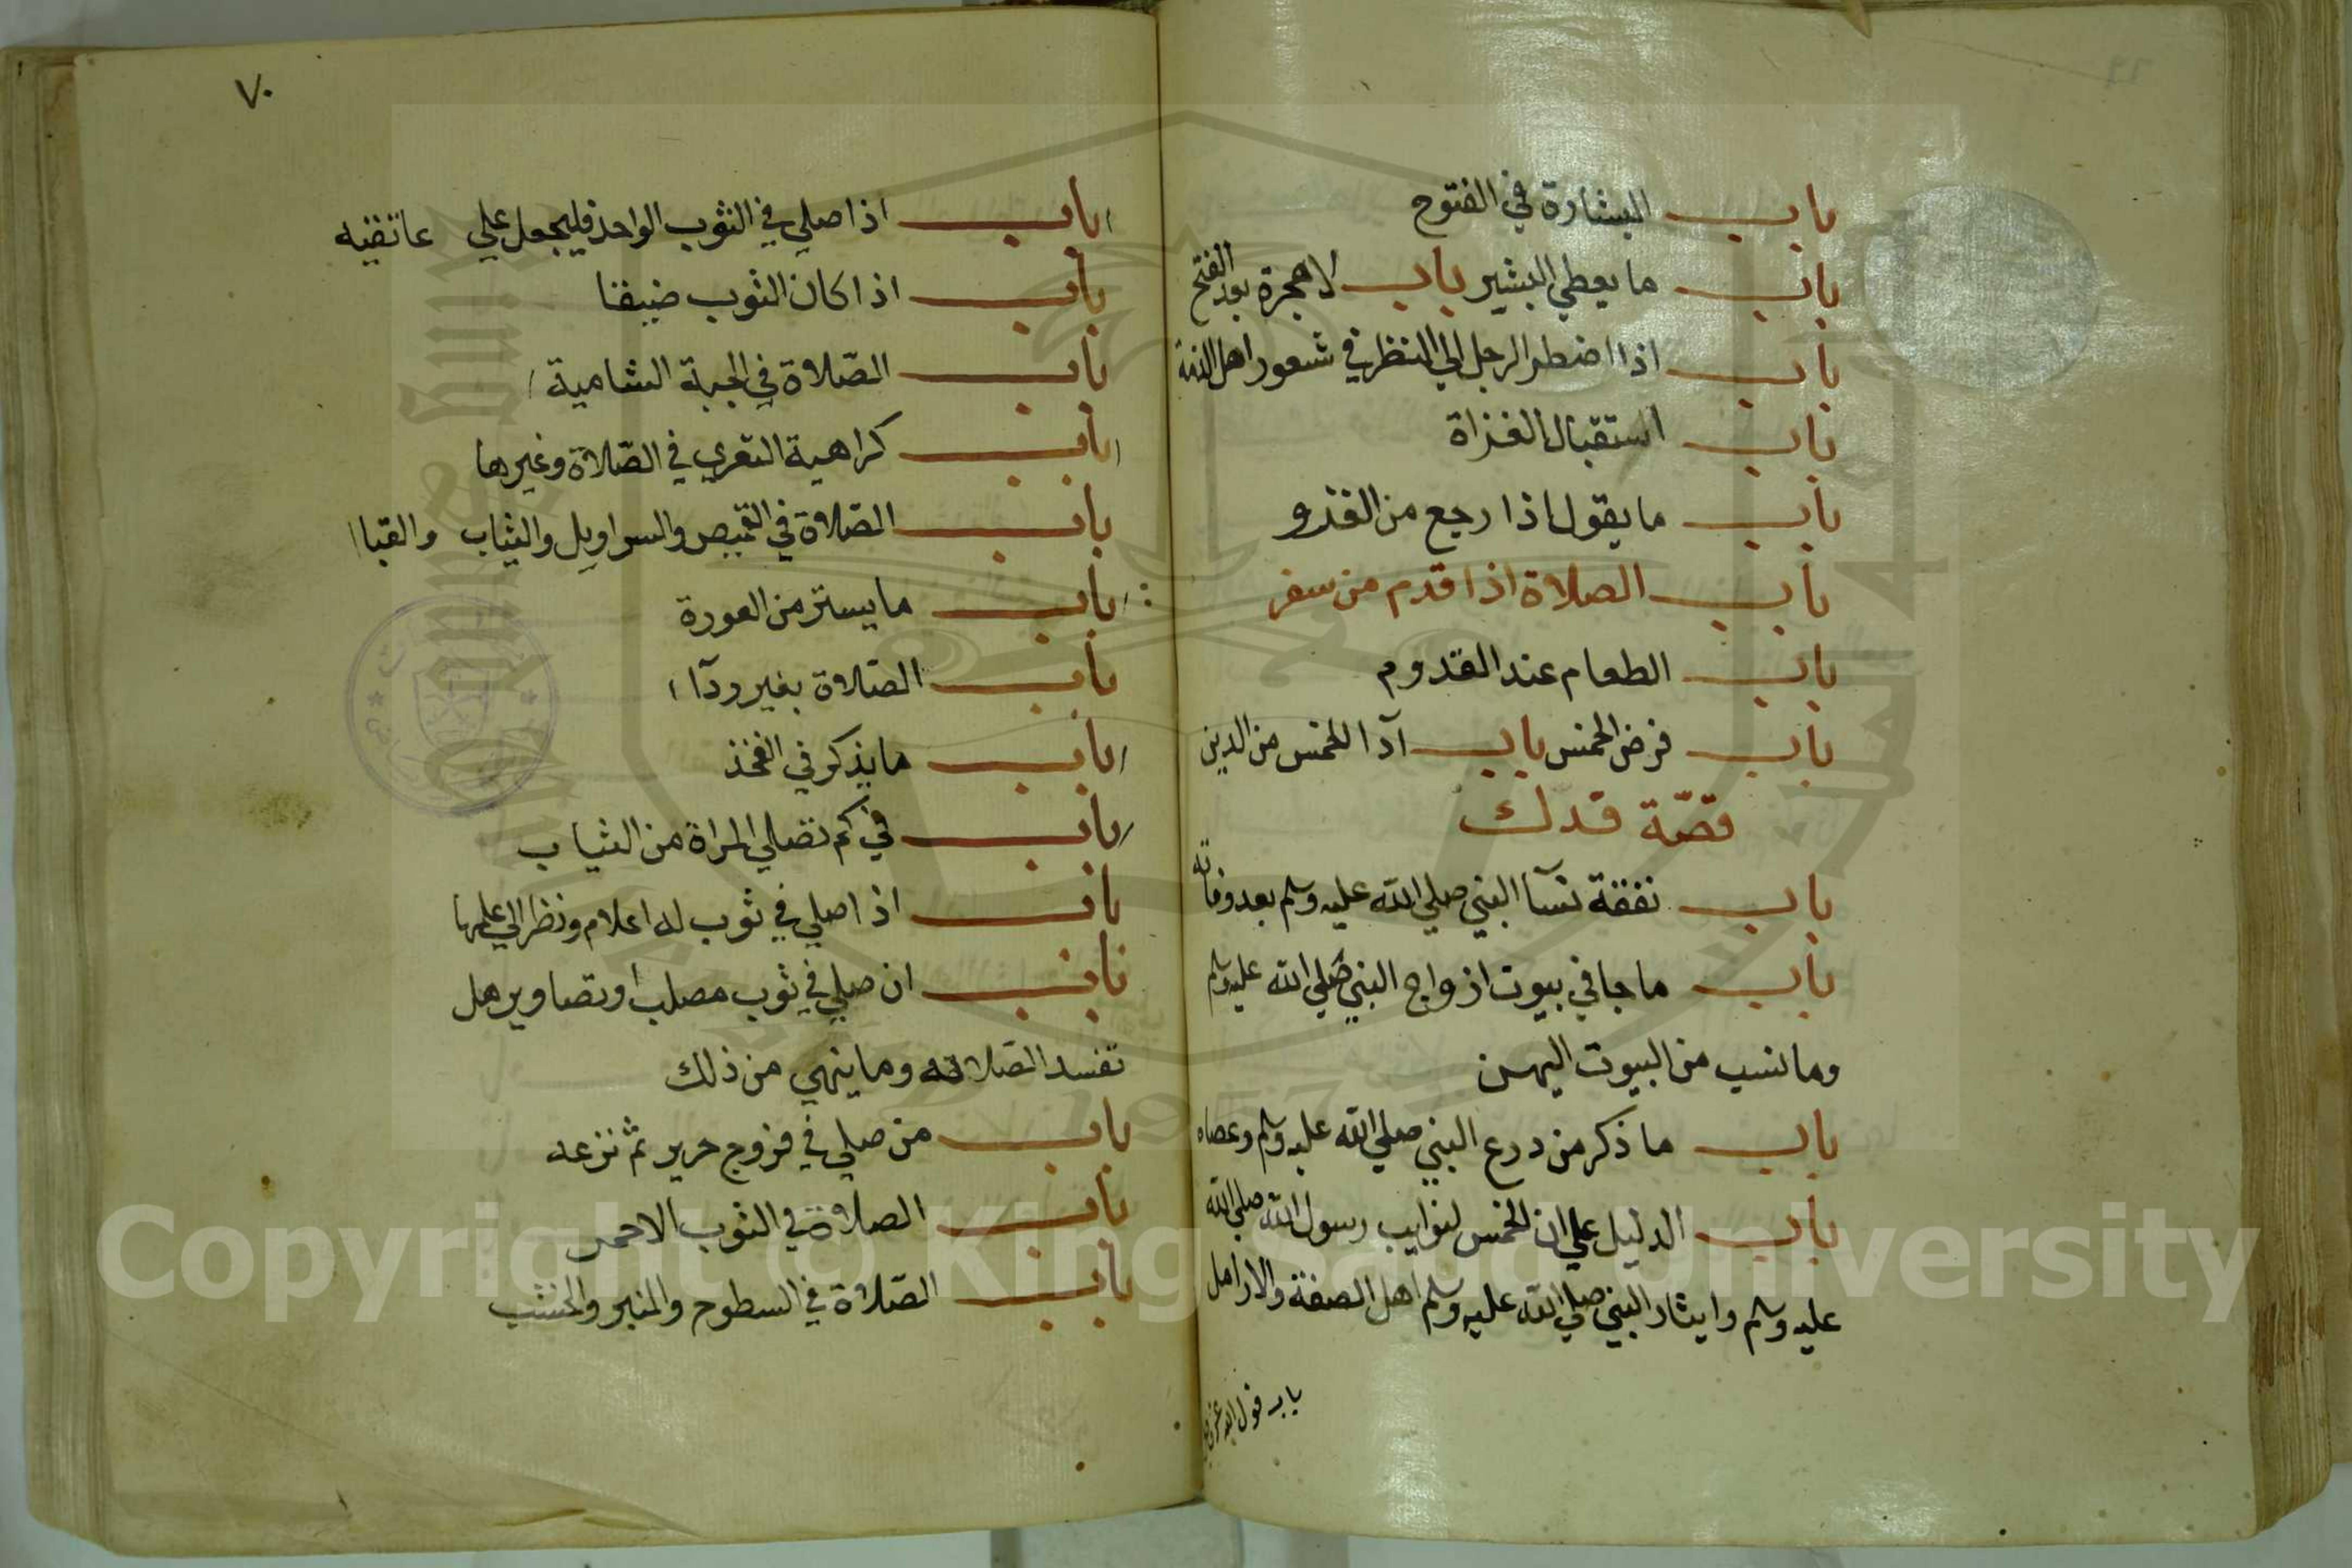 باب البشارة في الفتوح
باب ما يعطي البشير باب لا هجرة بعد الفتح
باب اذا اضطر الرجل الي النظر في شعور اهل الذمة
باب استقبال الغزاة
باب ما يقول اذا رجع من الغزو
باب الصلاة اذا قدم من سفر
باب الطعام عند القدوم
باب فرض الخمس باب ادآ الخمس من الدين
قصّة فدك
باب نفقة نسآ النبي صلي الله عليه وسلم بعد وفاته
باب ما جا في بيوت ازواج النبي صلي الله عليه وسلم
وما نسب من البيوت اليهن
باب ما ذكر من درع النبي صلي الله عليه وسلم وعصاه
باب الدليل علي ان الخمس لنوايب رسول الله صلي الله
عليه وسلم وايثار النبي صلي الله عليه وسلم اهل الصفة والارامل
باب قول الله عز
٧٠
باب اذا صلي في الثوب الواحد فليجعل علي عاتقيه
باب اذا كان الثوب ضيقا
باب الصّلاة في الجبة الشامية
باب كراهية التعري في الصّلاة وغيرها
باب الصّلاة في القميص والسراويل والثياب والقبا
باب ما يستر من العورة
باب الصّلاة بغير ردآ
باب ما يذكر في الفخذ
باب في كم تصلي المراة من الثياب
باب اذا صلي في ثوب له اعلام ونظر الي علمها
باب ان صلي في ثوب مصلب او تصاوير هل
تفسد الصّلاته وما ينهي من ذلك
باب من صلي في فروج حرير ثم نزعه
باب الصلاة في الثوب الاحمر
باب الصّلاة في السطوح والمنبر والخشب
Copyright © King Saud University
1957